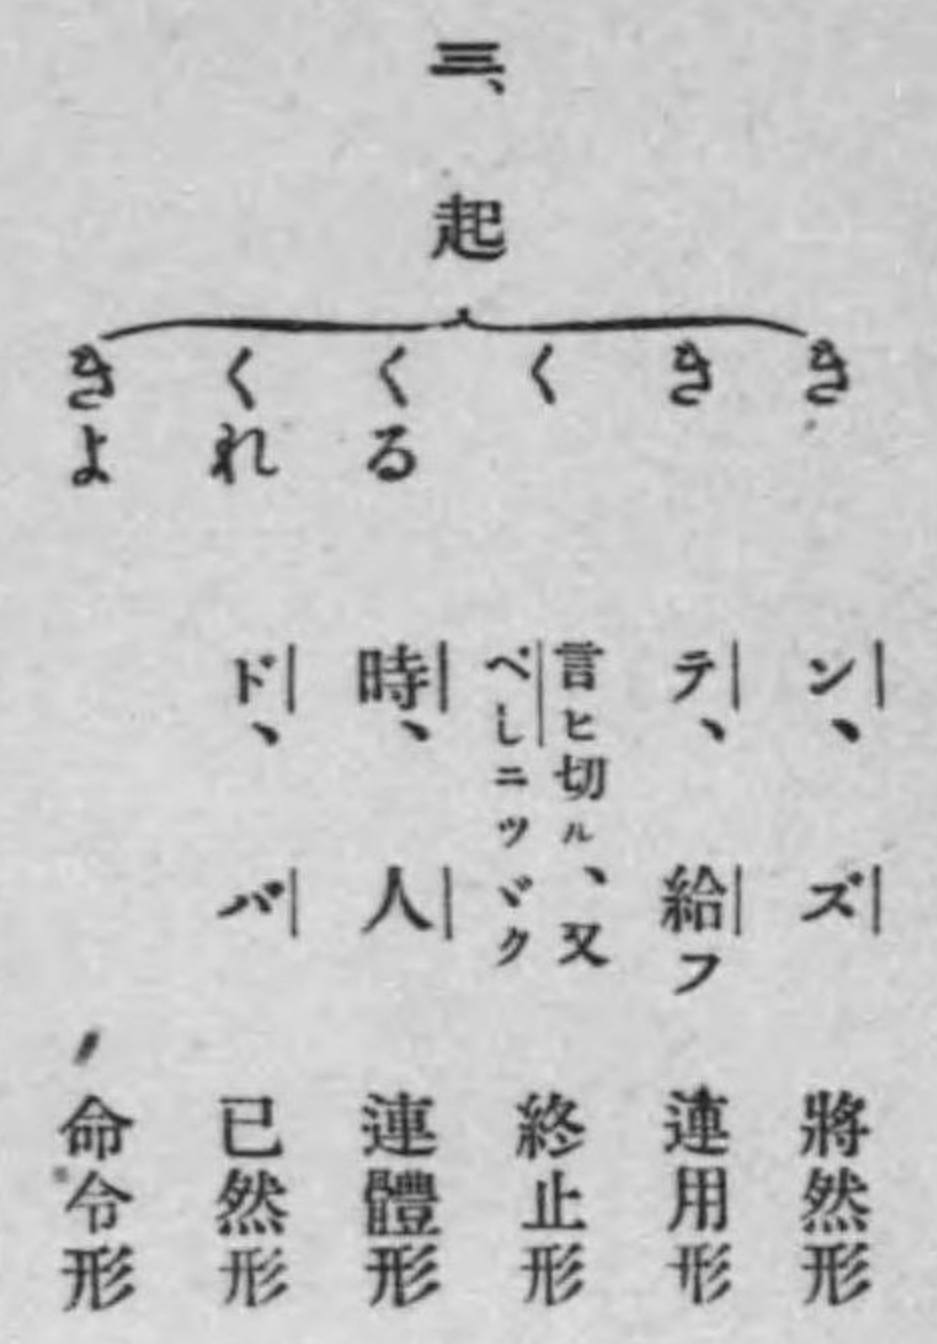 三、
起
き ン、ズ 將然形
き テ、給フ 連用形
く 言ヒ切ル、又
べしニツヾク 終止形
くる 時、人 連體形
くれ ド、バ 已然形
きよ 命令形